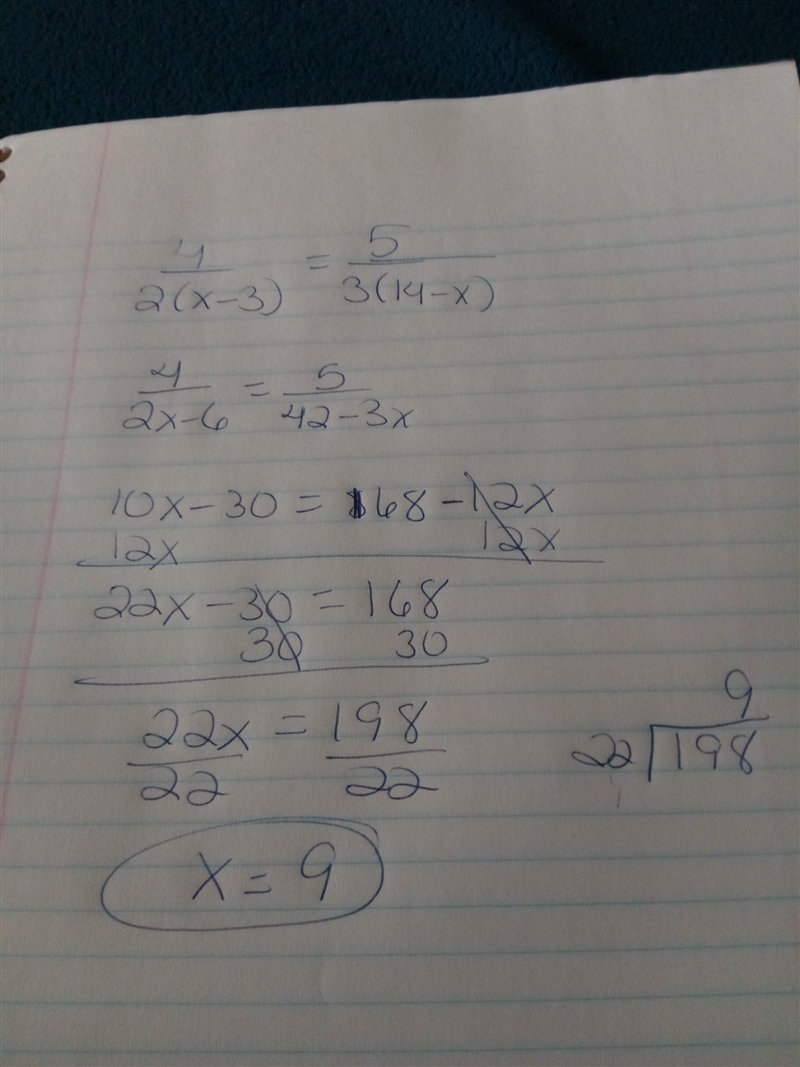 4 = 5
2(x-3) 3(14-x)
4 = 5
2x-6 42-3x
10x-30 = 168-12x
12x 12x
22x-30 = 168
30 30
22x = 198
22 22
9
22 198
x = 9